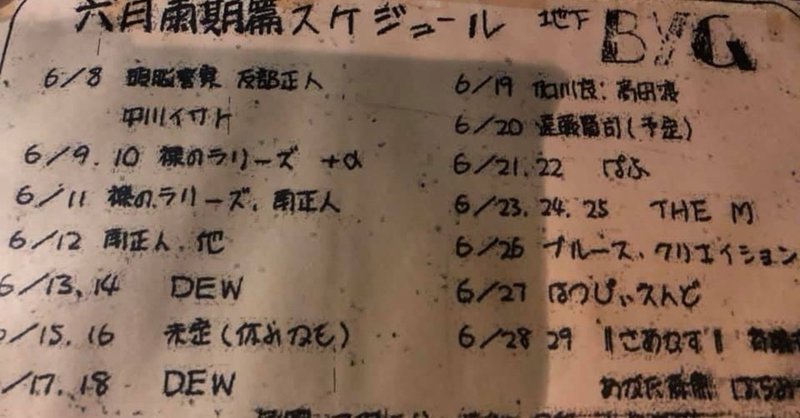 六月雨期篇スケジュール 地下 BYG
6/8 頭脳警察 友部正人
中川イサト
6/9.10 裸のラリーズ +α
6/11 裸のラリーズ、南正人
6/12 南正人、他
6/13.14 DEW
/15.16 未定(休みかも)
/17.18 DEW
6/19 加川良、高田渡
6/20 遠藤賢司(予定)
6/21.22 ぱふ
6/23.24.25 THE M
6/26 ブルース、クリエイション
6/27 はっぴいえんど
6/28 29 "さあかす"